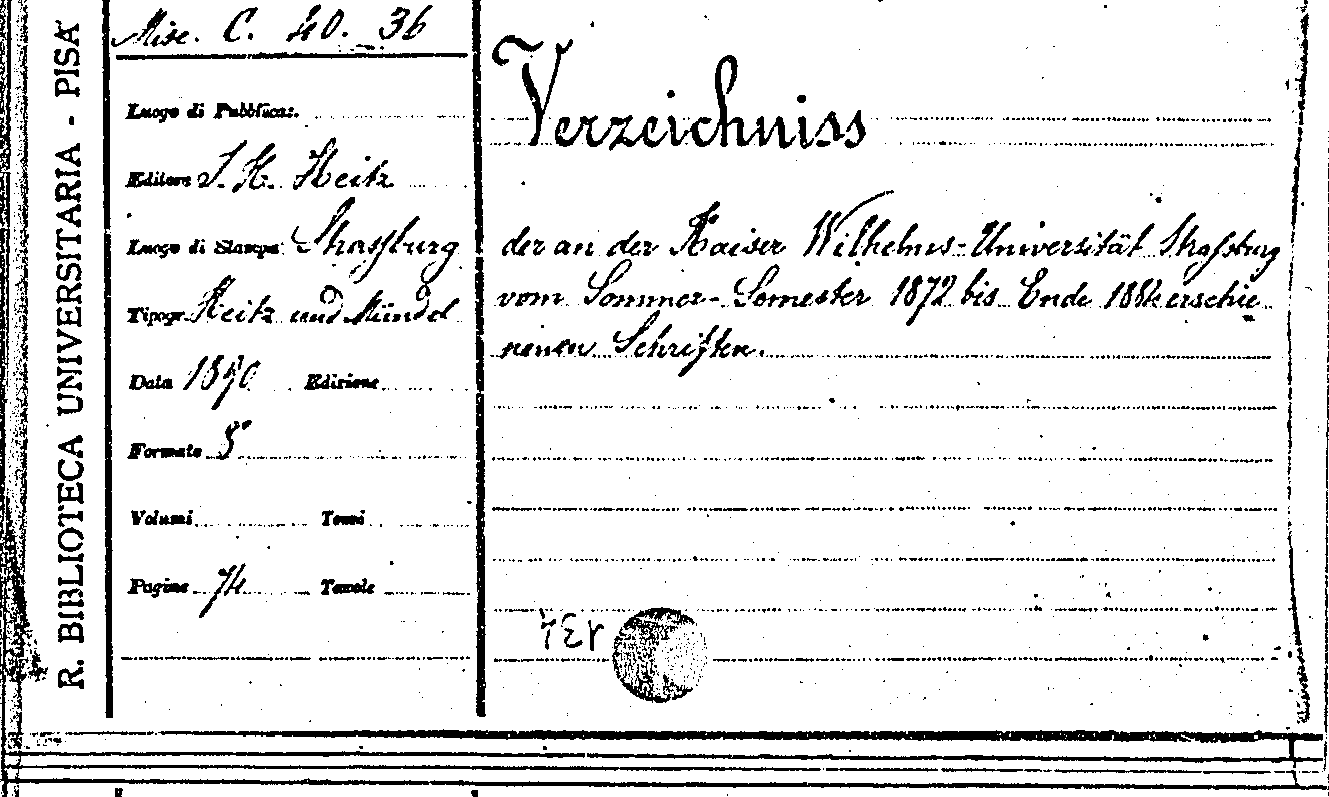 R. BIBLIOTECA UNIVERSITARIA - PISA
Misc. C. 40. 36
Luogo di Pubblicaz.
Editore J. H. Heitz
Luogo di Stampa Straßburg
Tipogr. Heitz und Mündel
Data 1890 Edizione
Formato 8°
Volumi Tomi
Pagine 74 Tavole
Verzeichniss
der an der Kaiser Wilhelms-Universität Straßburg
vom Sommer-Semester 1872 bis Ende 1884 erschie
nenen Schriften.